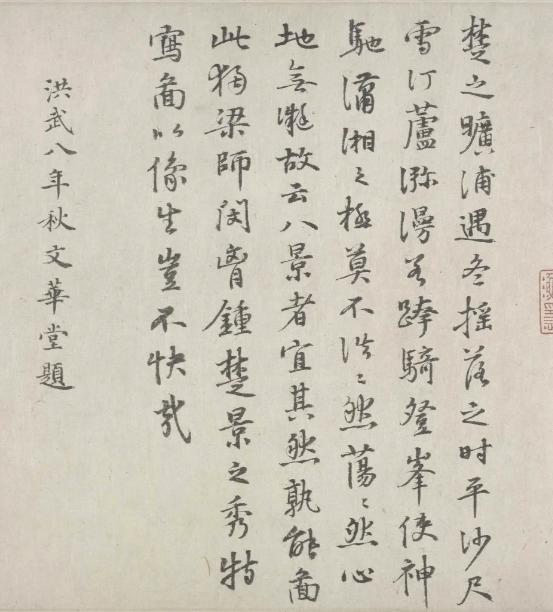 楚之曠浦遇冬搖落之时平沙尺
雪汀蘆渺漫若跨騎登峯使神
馳瀟湘之極莫不浩〻然蕩〻然心
地無凝故云八景者宜其然孰能圖
此獨梁師閔胷鍾楚景之秀特
寫圖以像生豈不快哉
洪武八年秋文華堂題